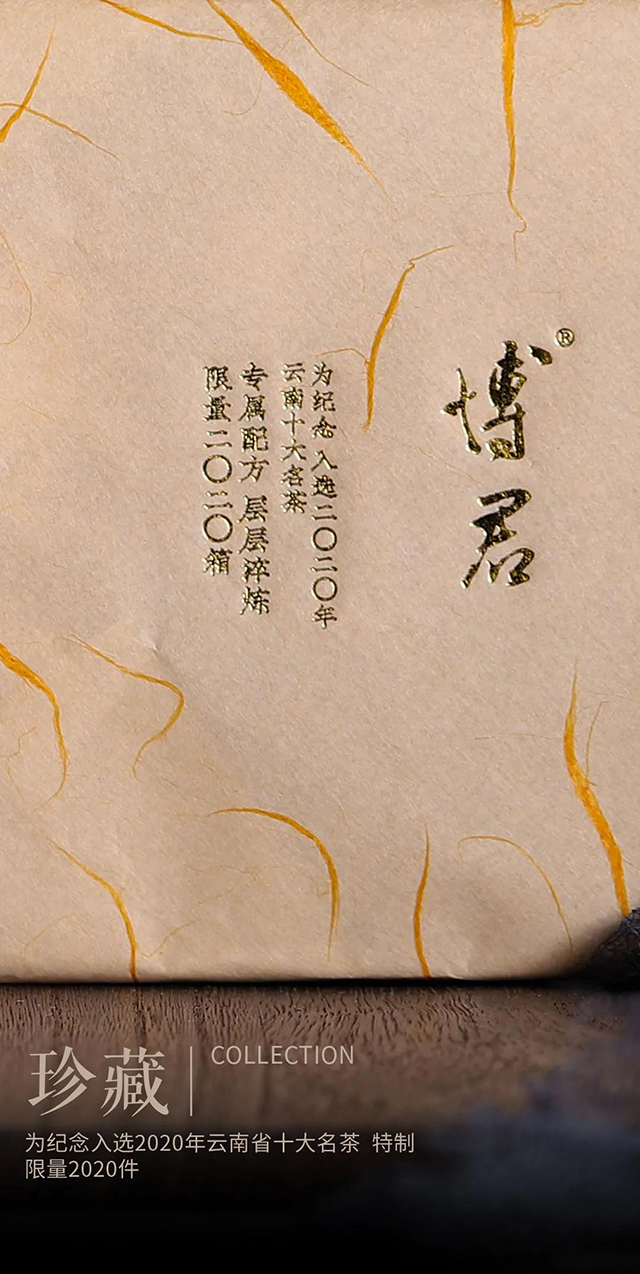 博君®
为纪念入选二〇二〇年
云南十大名茶
专属配方 层层淬炼
限量二〇二〇箱
珍藏
COLLECTION
为纪念入选2020年云南省十大名茶 特制
限量2020件